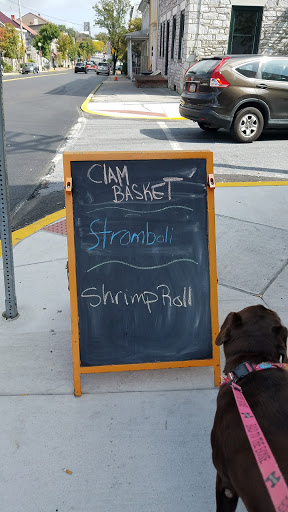 CLAM
BASKET
Stromboli
Shrimp Roll